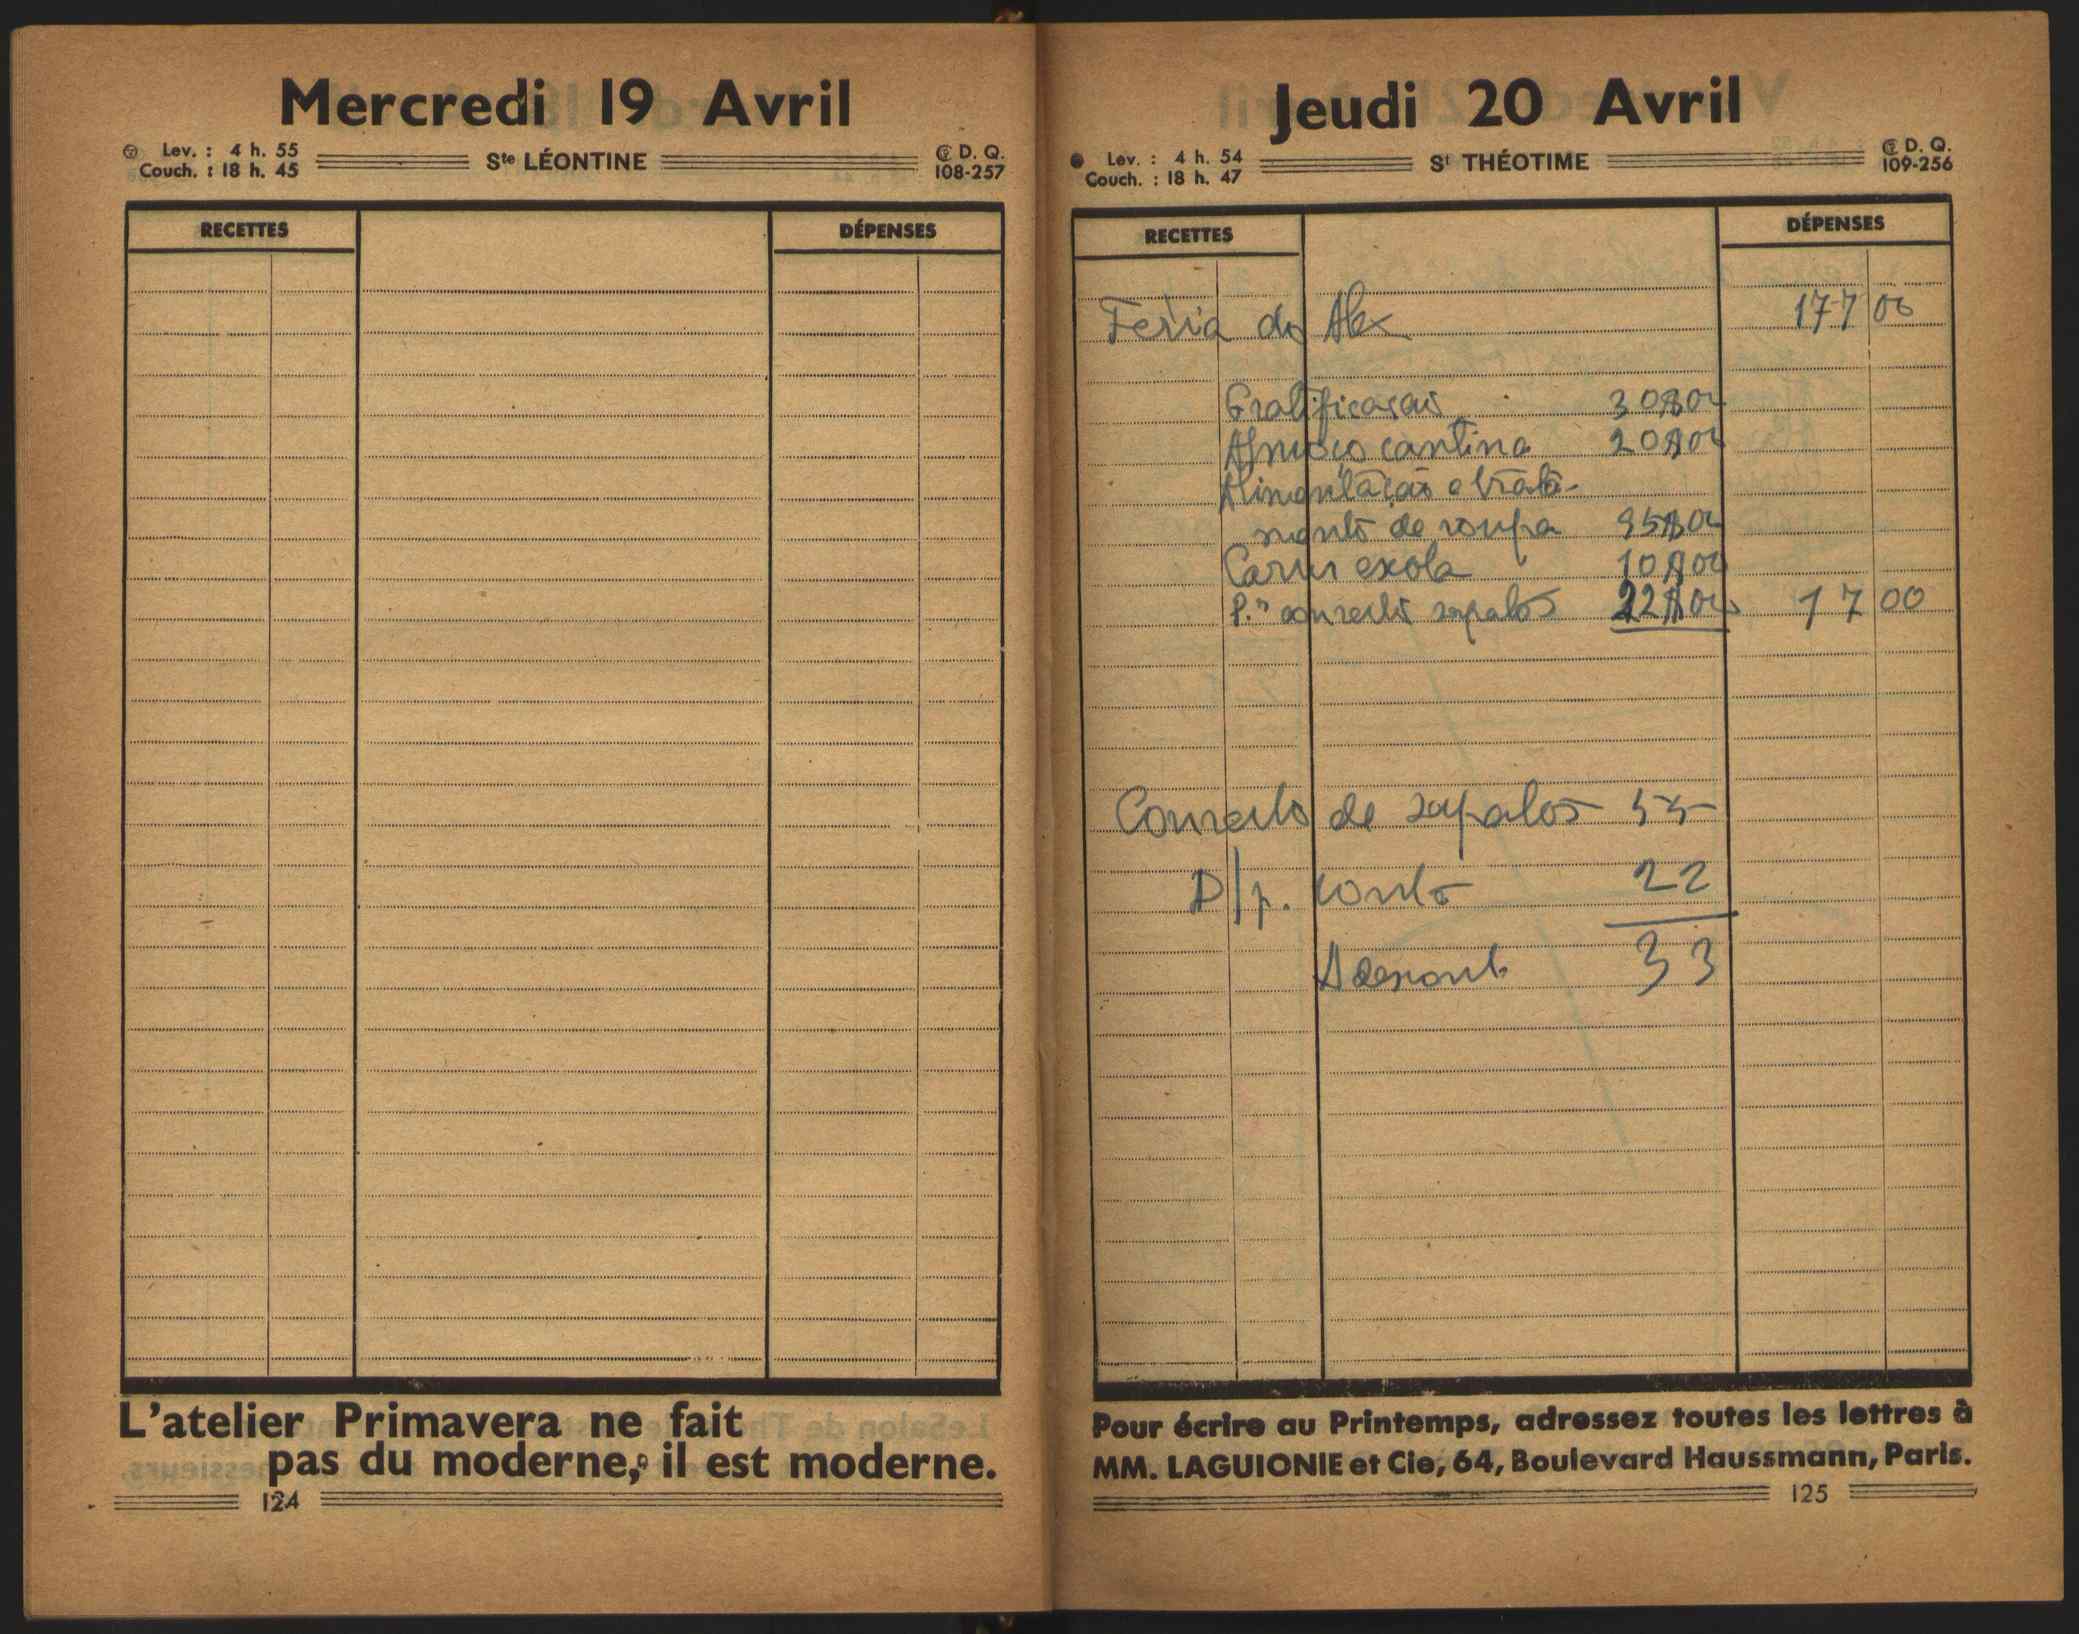 Mercredi 19 Avril
Lev. : 4 h. 55
Couch. : 18 h. 45
Ste LÉONTINE
D. Q.
108-257
RECETTES
DÉPENSES
L'atelier Primavera ne fait
pas du moderne, il est moderne.
124
Jeudi 20 Avril
Lev. : 4 h. 54
Couch. : 18 h. 47
St THÉOTIME
D. Q.
109-256
RECETTES
DÉPENSES
Feria do Alex 177 00
Gratificação 30$00
Almoço cantina 20$00
Alimentação e trata-
mento de roupa 95$00
10$00
concerto sapatos 22$00 17 00
Concerto de sapatos 55
D/p. conta 22
Descont. 33
Pour écrire au Printemps, adressez toutes les lettres à
MM. LAGUIONIE et Cie, 64, Boulevard Haussmann, Paris.
125